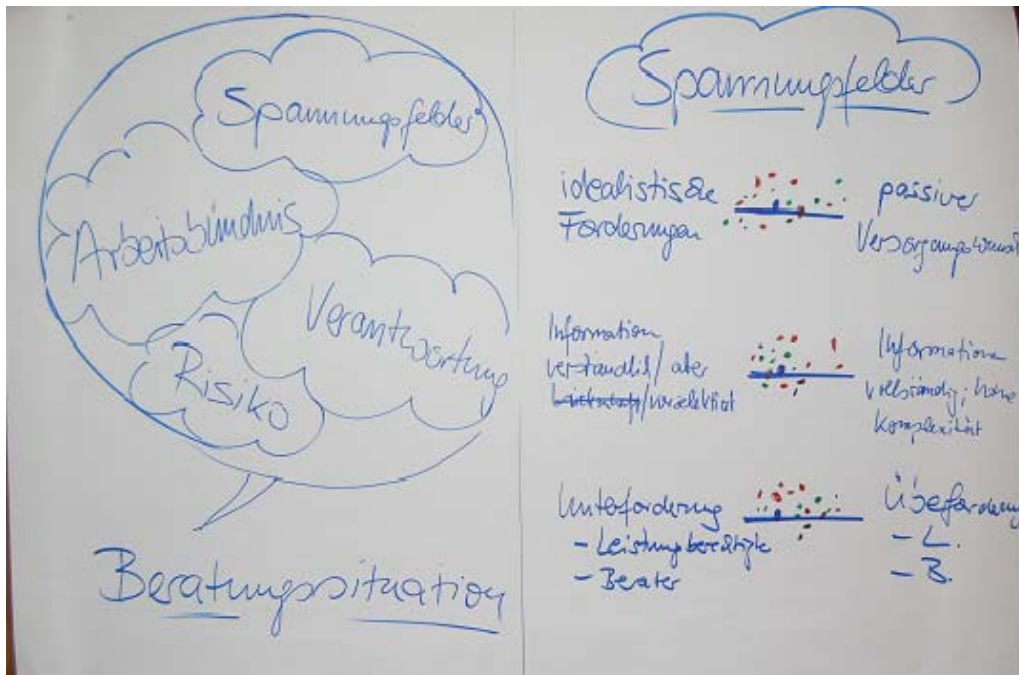 Spannungsfelder
Arbeitsbündnis
Verantwortung
Risiko
Beratungssituation
Spannungsfelder
idealistische
Forderungen
passiver
Information
verständlich / aber
/ vorselektiert
Information
vollständig; hohe
Komplexität
Unterforderung
- Leistungsberechtigte
- Berater
Überforderung
- L.
- B.